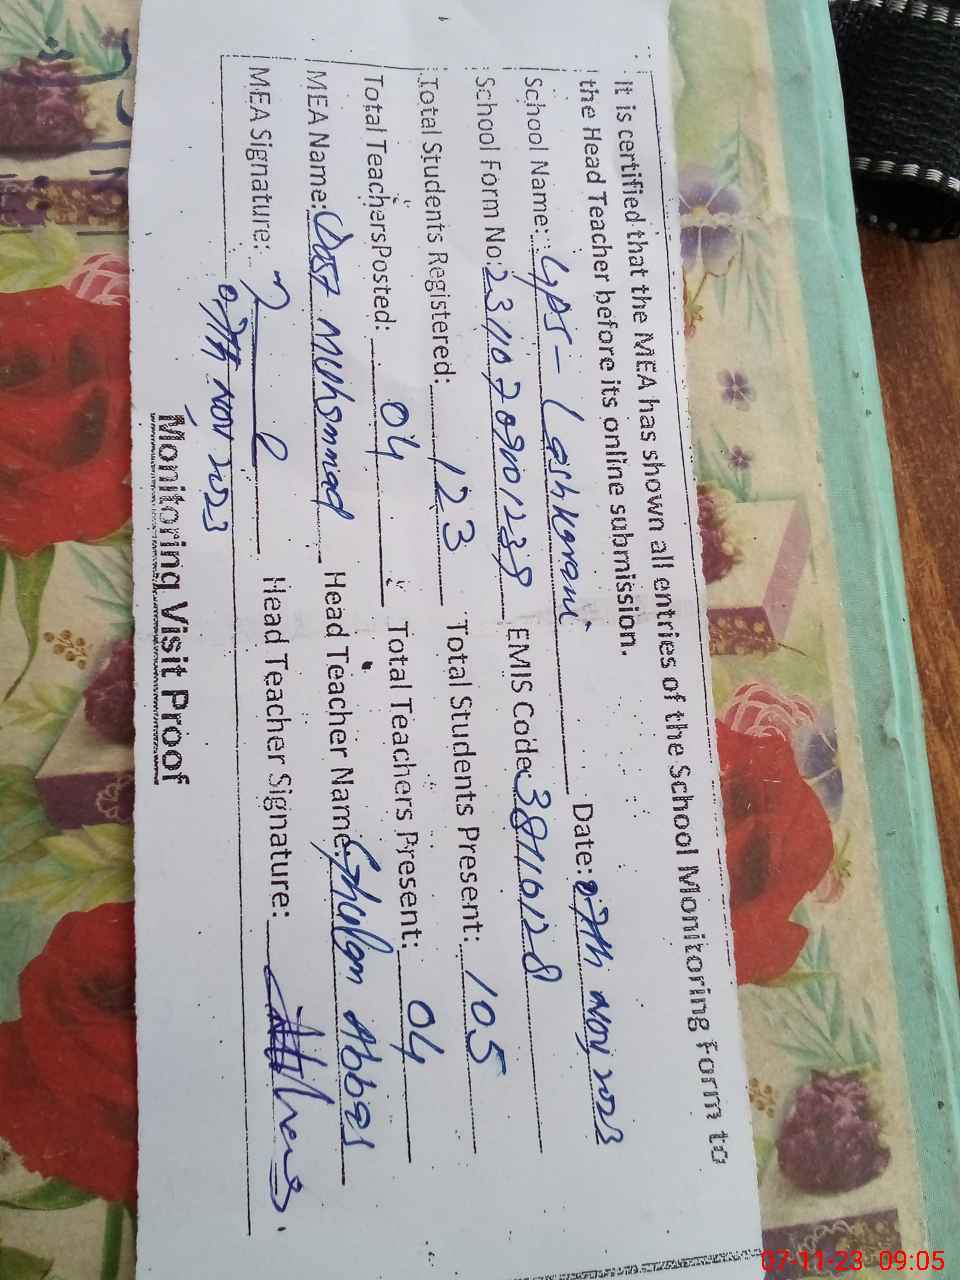 It is certified that the MEA has shown all entries of the School Monitoring Form to
the Head Teacher before its online submission.
School Name: GPS - Lashkarani Date: 07th Nov 2023
School Form No: EMIS Code
Total Students Registered: 123 Total Students Present: 105
Total Teachers Posted: 04 Total Teachers Present: 04
MEA Name: Dost Muhammad Head Teacher Name: Ghulam Abbas
MEA Signature: Head Teacher Signature:
07th Nov 2023
Monitoring Visit Proof
07-11-23 09:05